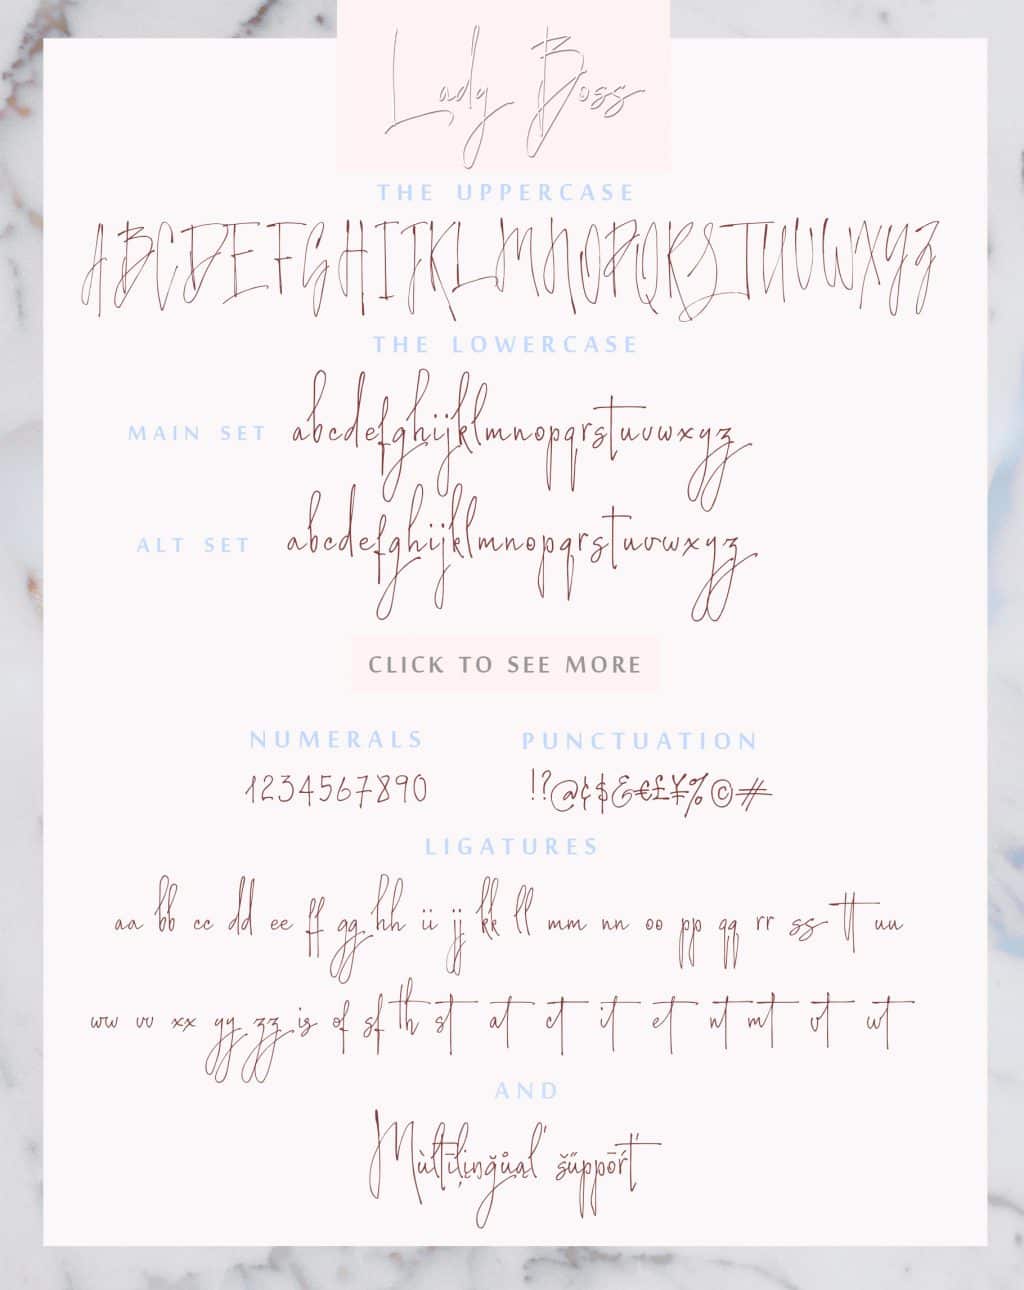 Lady Boss
THE UPPERCASE
ABCDEFGHIJKLMNOPQRSTUVWXYZ
THE LOWERCASE
MAIN SET abcdefghijklmnopqrstuvwxyz
ALT SET abcdefghijklmnopqrstuvwxyz
CLICK TO SEE MORE
NUMERALS PUNCTUATION
1234567890 !?@¢$&€£¥%©#
LIGATURES
aa bb cc dd ee ff gg hh ii jj kk ll mm nn oo pp qq rr ss tt uu
ww vv xx yy zz is of sf th st at ct it et nt mt ot ut
AND
Mùltīļįnğůąl šűppōŕt